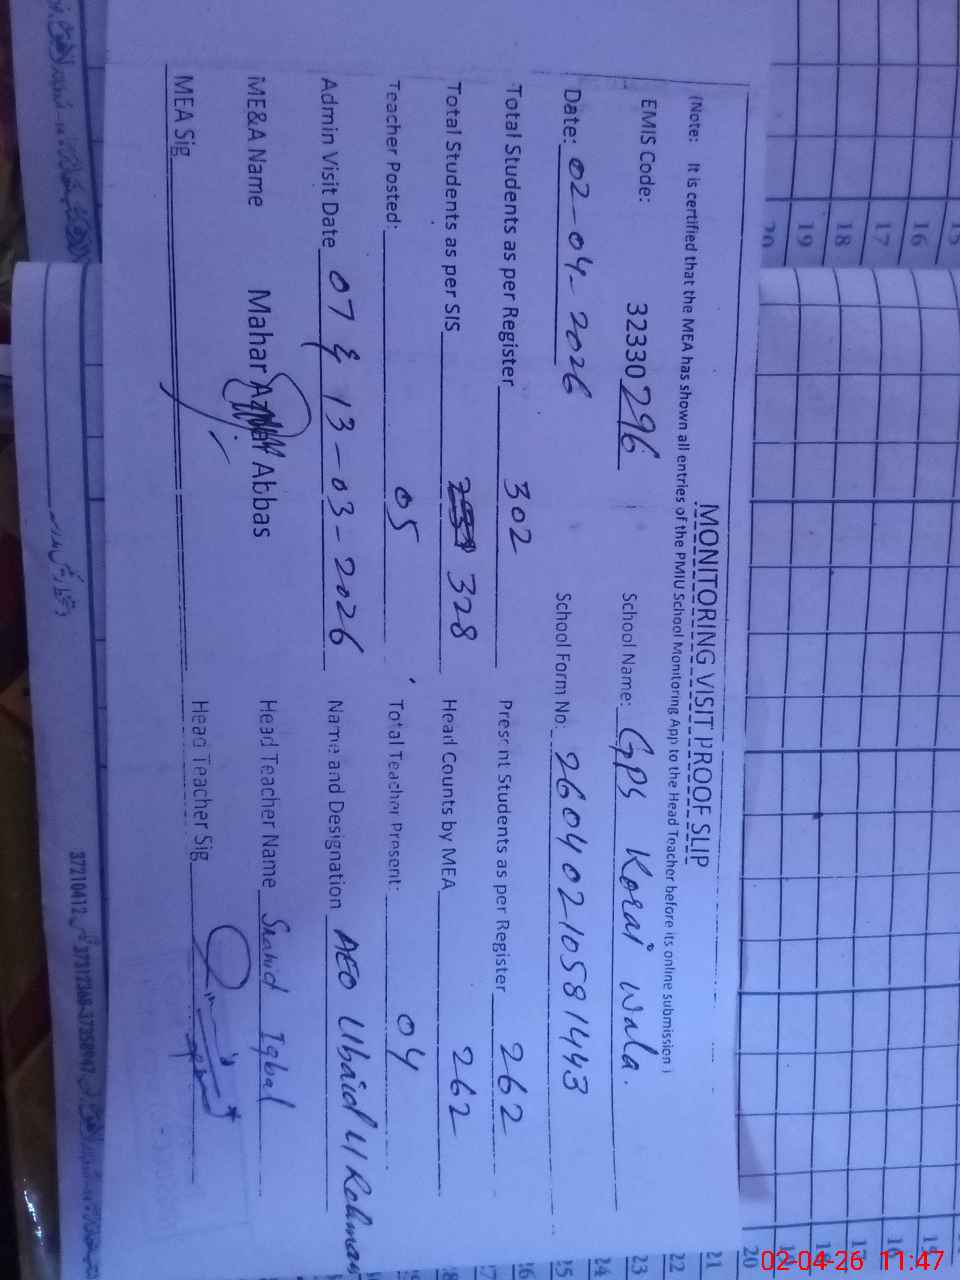 MONITORING VISIT PROOF SLIP
(Note: It is certified that the MEA has shown all entries of the PMIU School Monitoring App to the Head Teacher before its online submission)
EMIS Code: 32330296 School Name: GPS Korai Wala.
Date: 02-04-2026 School Form No: 260402105811443
Total Students as per Register 302 Present Students as per Register 262
Total Students as per SIS 328 Head Counts by MEA 262
Teacher Posted: 05 Total Teacher Present: 04
Admin Visit Date 07 & 13-03-2026 Name and Designation AEO Ubaid Ul Rehman
ME&A Name Mahar Abbas Head Teacher Name Shahid Iqbal
MEA Sig Head Teacher Sig
15
16
17
18
19
20
14
16
17
18
19
20
21
22
23
24
25
26
27
28
37210412 37317368-37358947
02-04-26 11:47